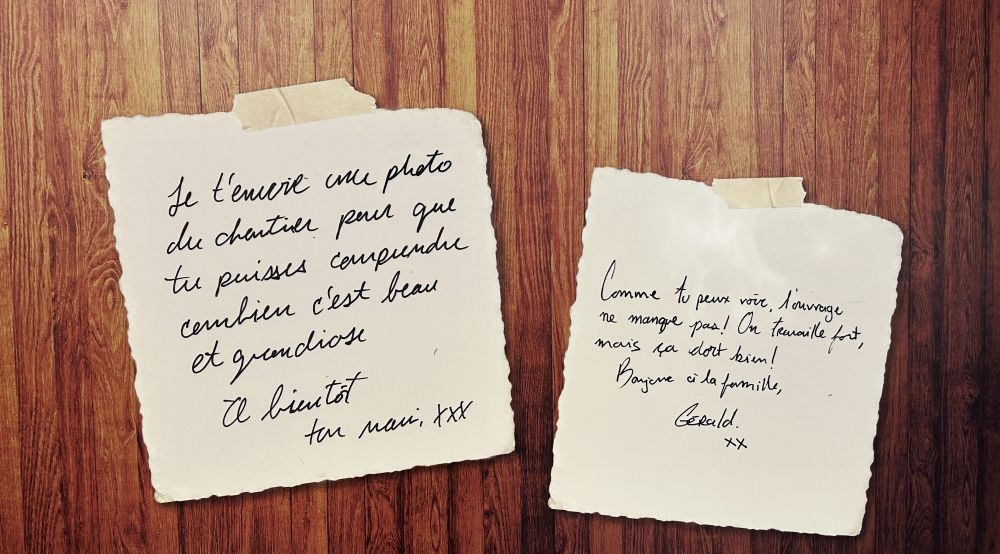 Je t'envoie une photo
du chantier pour que
tu puisses comprendre
combien c'est beau
et grandiose
A bientôt
ton mari, xxx
Comme tu peux voir, l'ouvrage
ne manque pas! On travaille fort,
mais ça dort bien!
Bonjour à la famille,
Gérald.
xx